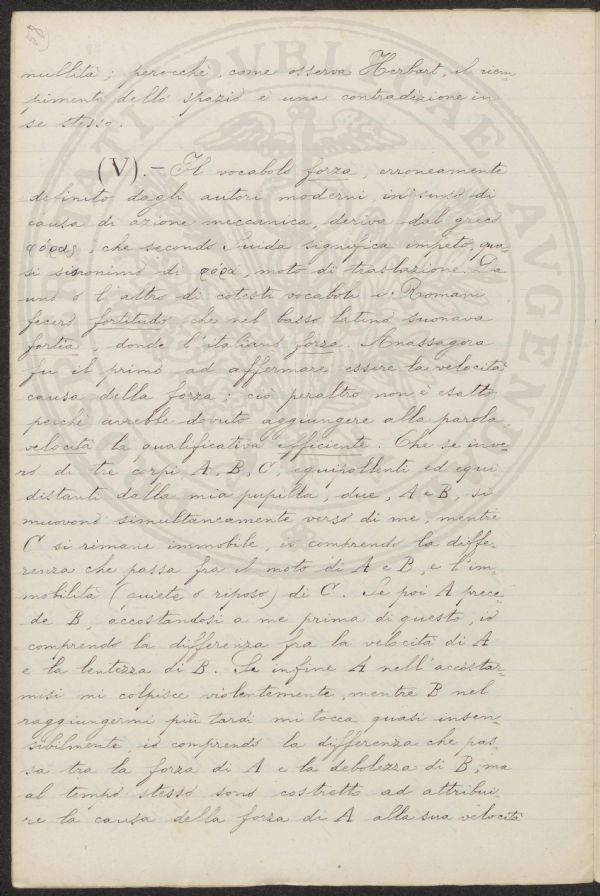 58
nullità; perocchè, come osserva Herbart, il riem-
pimento dello spazio è una contradizione in
se stesso.
(V). — Il vocabolo forza, erroneamente
definito dagli autori moderni, in senso di
causa di azione meccanica, deriva dal greco
φόρας, che secondo Suida significa impeto, qua-
si sinonimo di φόρα, moto di traslazione. Da
uno o l'altro di cotesti vocaboli i Romani
fecero fortitudo che nel basso latino suonava
fortia, donde l'italiano forza. Anassagora
fu il primo ad affermare essere la velocità
causa della forza; ciò peraltro non è esatto
perchè avrebbe dovuto aggiungere alla parola
velocità la qualificativa efficiente. Che se inve-
ro di tre corpi A, B, C, equipollenti ed equi
distanti dalla mia pupilla, due, A e B, si
muovono simultaneamente verso di me, mentre
C si rimane immobile, io comprendo la diffe-
renza che passa fra il moto di A e B, e l'im-
mobilità (quiete o riposo) di C. Se poi A prece-
de B, accostandosi a me prima di questo, io
comprendo la differenza fra la velocità di A
e la lentezza di B. Se infine A nell'accostar-
misi mi colpisce violentemente, mentre B nel
raggiungermi più tardi mi tocca quasi insen-
sibilmente, io comprendo la differenza che pas-
sa tra la forza di A e la debolezza di B; ma
al tempo stesso sono costretto ad attribui-
re la causa della forza di A alla sua velocità